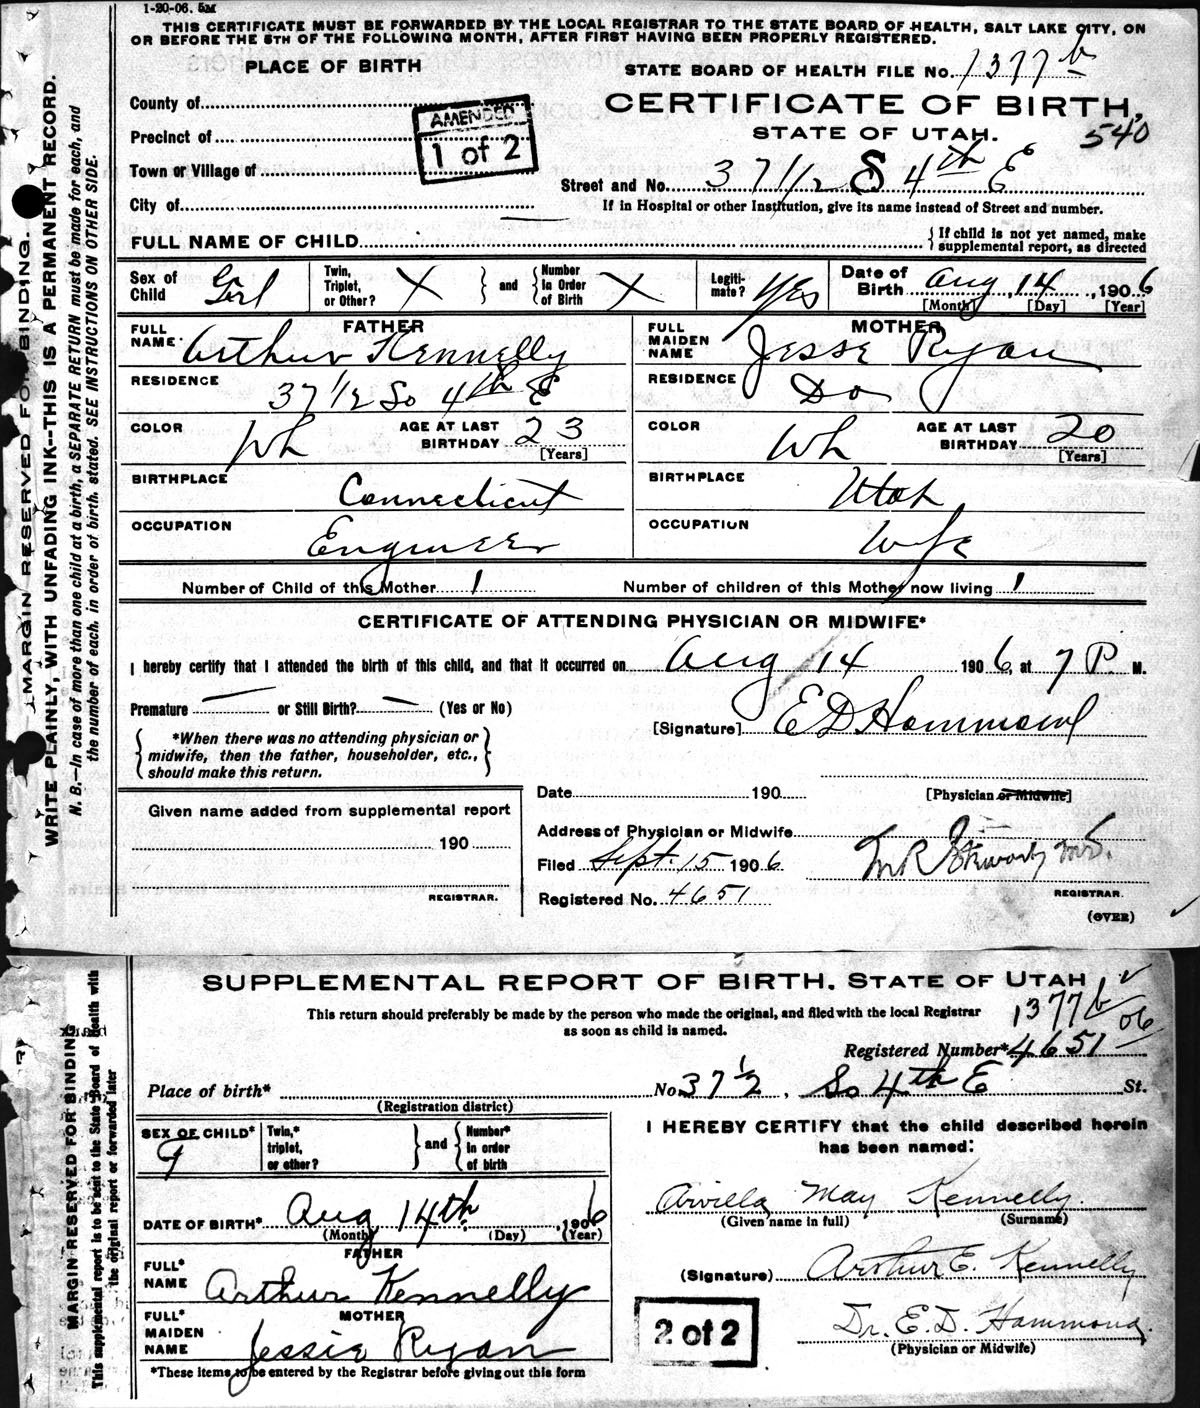 1-20-06. 5M
THIS CERTIFICATE MUST BE FORWARDED BY THE LOCAL REGISTRAR TO THE STATE BOARD OF HEALTH, SALT LAKE CITY, ON
OR BEFORE THE 5TH OF THE FOLLOWING MONTH, AFTER FIRST HAVING BEEN PROPERLY REGISTERED.
PLACE OF BIRTH
STATE BOARD OF HEALTH FILE No. 1377 b
County of
CERTIFICATE OF BIRTH,
AMENDED
1 of 2
Precinct of
STATE OF UTAH.
540
Town or Village of
Street and No. 37 1/2 S 4th E
City of
If in Hospital or other Institution, give its name instead of Street and number.
FULL NAME OF CHILD
{ If child is not yet named, make
supplemental report, as directed
Sex of Child Girl
Twin, Triplet, or Other? X } and { Number In Order of Birth X
Legiti-mate? Yes
Date of Birth Aug, 14, 1906
[Month] [Day] [Year]
FATHER
FULL NAME Arthur Kennelly
MOTHER
FULL MAIDEN NAME Jesse Ryan
RESIDENCE 37 1/2 So 4th E
RESIDENCE Do
COLOR Wh AGE AT LAST BIRTHDAY 23 [Years]
COLOR Wh AGE AT LAST BIRTHDAY 20 [Years]
BIRTHPLACE Connecticut
BIRTHPLACE Utah
OCCUPATION Engineer
OCCUPATION Wife
Number of Child of this Mother 1 Number of children of this Mother now living 1
CERTIFICATE OF ATTENDING PHYSICIAN OR MIDWIFE*
I hereby certify that I attended the birth of this child, and that it occurred on Aug 14 1906, at 7 P. M.
Premature — or Still Birth? — (Yes or No)
[Signature] E D Hammond
{ *When there was no attending physician or
midwife, then the father, householder, etc.,
should make this return. }
Date 190
[Physician or Midwife]
Given name added from supplemental report
190
REGISTRAR.
Address of Physician or Midwife
Filed Sept. 15 1906
REGISTRAR.
Registered No. 4651
(OVER)
MARGIN RESERVED FOR BINDING.
WRITE PLAINLY, WITH UNFADING INK--THIS IS A PERMANENT RECORD.
N. B.—In case of more than one child at a birth, a SEPARATE RETURN must be made for each, and
the number of each, in order of birth, stated. SEE INSTRUCTIONS ON OTHER SIDE.
SUPPLEMENTAL REPORT OF BIRTH. STATE OF UTAH
This return should preferably be made by the person who made the original, and filed with the local Registrar
as soon as child is named.
1377 b/06
Registered Number* 4651
Place of birth* No. 37 1/2, So 4th E St.
(Registration district)
SEX OF CHILD* G
Twin,* triplet, or other? } and { Number* in order of birth
I HEREBY CERTIFY that the child described herein
has been named:
Arvilla May Kennelly.
(Given name in full) (Surname)
DATE OF BIRTH* Aug 14th, 1906
(Month) (Day) (Year)
FATHER
FULL* NAME Arthur Kennelly
(Signature) Arthur E. Kennelly
MOTHER
FULL* MAIDEN NAME Jessie Ryan
2 of 2
Dr. E. D. Hammond.
(Physician or Midwife)
*These items to be entered by the Registrar before giving out this form
MARGIN RESERVED FOR BINDING
This supplemental report is to be sent to the State Board of Health with
the original report or forwarded later